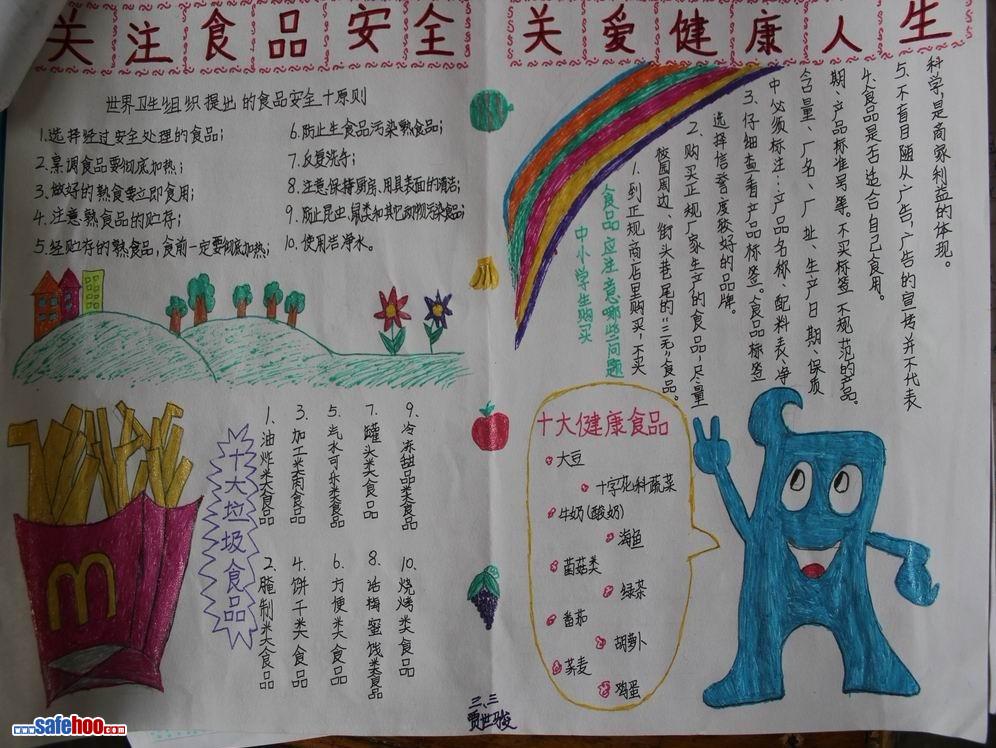 关注食品安全 关爱健康人生
世界卫生组织提出的食品安全十原则
1.选择经过安全处理的食品；
2.烹调食品要彻底加热；
3.做好的熟食要立即食用；
4.注意熟食品的贮存；
5.经贮存的熟食品，食前一定要彻底加热；
6.防止生食品污染熟食品；
7.反复洗手；
8.注意保持厨房、用具表面的清洁；
9.防止昆虫、鼠类和其它动物污染食品；
10.使用洁净水。
中小学生购买
食品应注意哪些问题
1、到正规商店里购买，不买
校园周边、街头巷尾的“三无”食品。
2、购买正规厂家生产的食品，尽量
选择信誉度较好的品牌。
3、仔细查看产品标签。食品标签
中必须标注：产品名称、配料表、净
含量、厂名、厂址、生产日期、保质
期、产品标准号等。不买标签不规范的产品。
4、食品是否适合自己食用。
5、不盲目随从广告，广告的宣传并不代表
科学，是商家利益的体现。
十大垃圾食品
1、油炸类食品
2、腌制类食品
3、加工类肉食品
4、饼干类食品
5、汽水可乐类食品
6、方便类食品
7、罐头类食品
8、话梅蜜饯类食品
9、冷冻甜品类食品
10、烧烤类食品
m
十大健康食品
大豆
十字花科蔬菜
牛奶(酸奶)
海鱼
菌菇类
绿茶
番茄
胡萝卜
荞麦
鸡蛋
三、三
贾世骏
www.safehoo.com